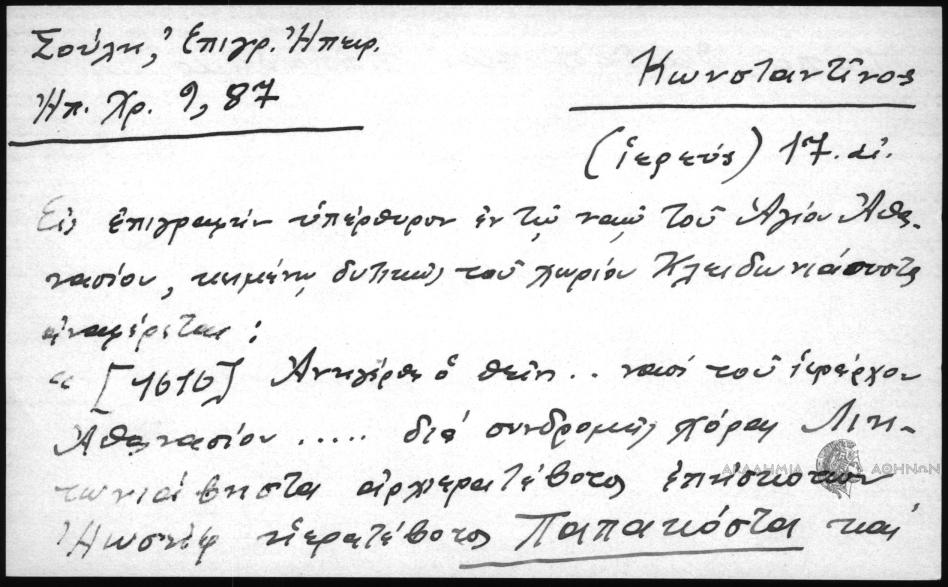 Σούλη, Ἐπιγρ. Ἠπειρ.
Ἠπ. Χρ. 9, 87
Κωνσταντῖνος
(ἱερεύς) 17. αἰ.
Εἰς ἐπιγραφὴν ὑπέρθυρον ἐν τῷ ναῷ τοῦ Ἁγίου Ἀθα-
νασίου, κειμένῳ δυτικῶς τοῦ χωρίου Κλειδωνιάβιστα
ἀναφέρεται:
"[1616] Ἀνηγέρθε ὁ θεῖος .. ναοὶ τοῦ ἱεράρχου
Ἀθανασίου ..... διὰ συνδρομῆς χόρας
τωνιάβηστα ἀρχιερατέβοτος ἐπησκόπου
Ἠωσήφ ἠερατέβοτος Παπακόστα καὶ
ΑΚΑΔΗΜΙΑ ΑΘΗΝΩΝ